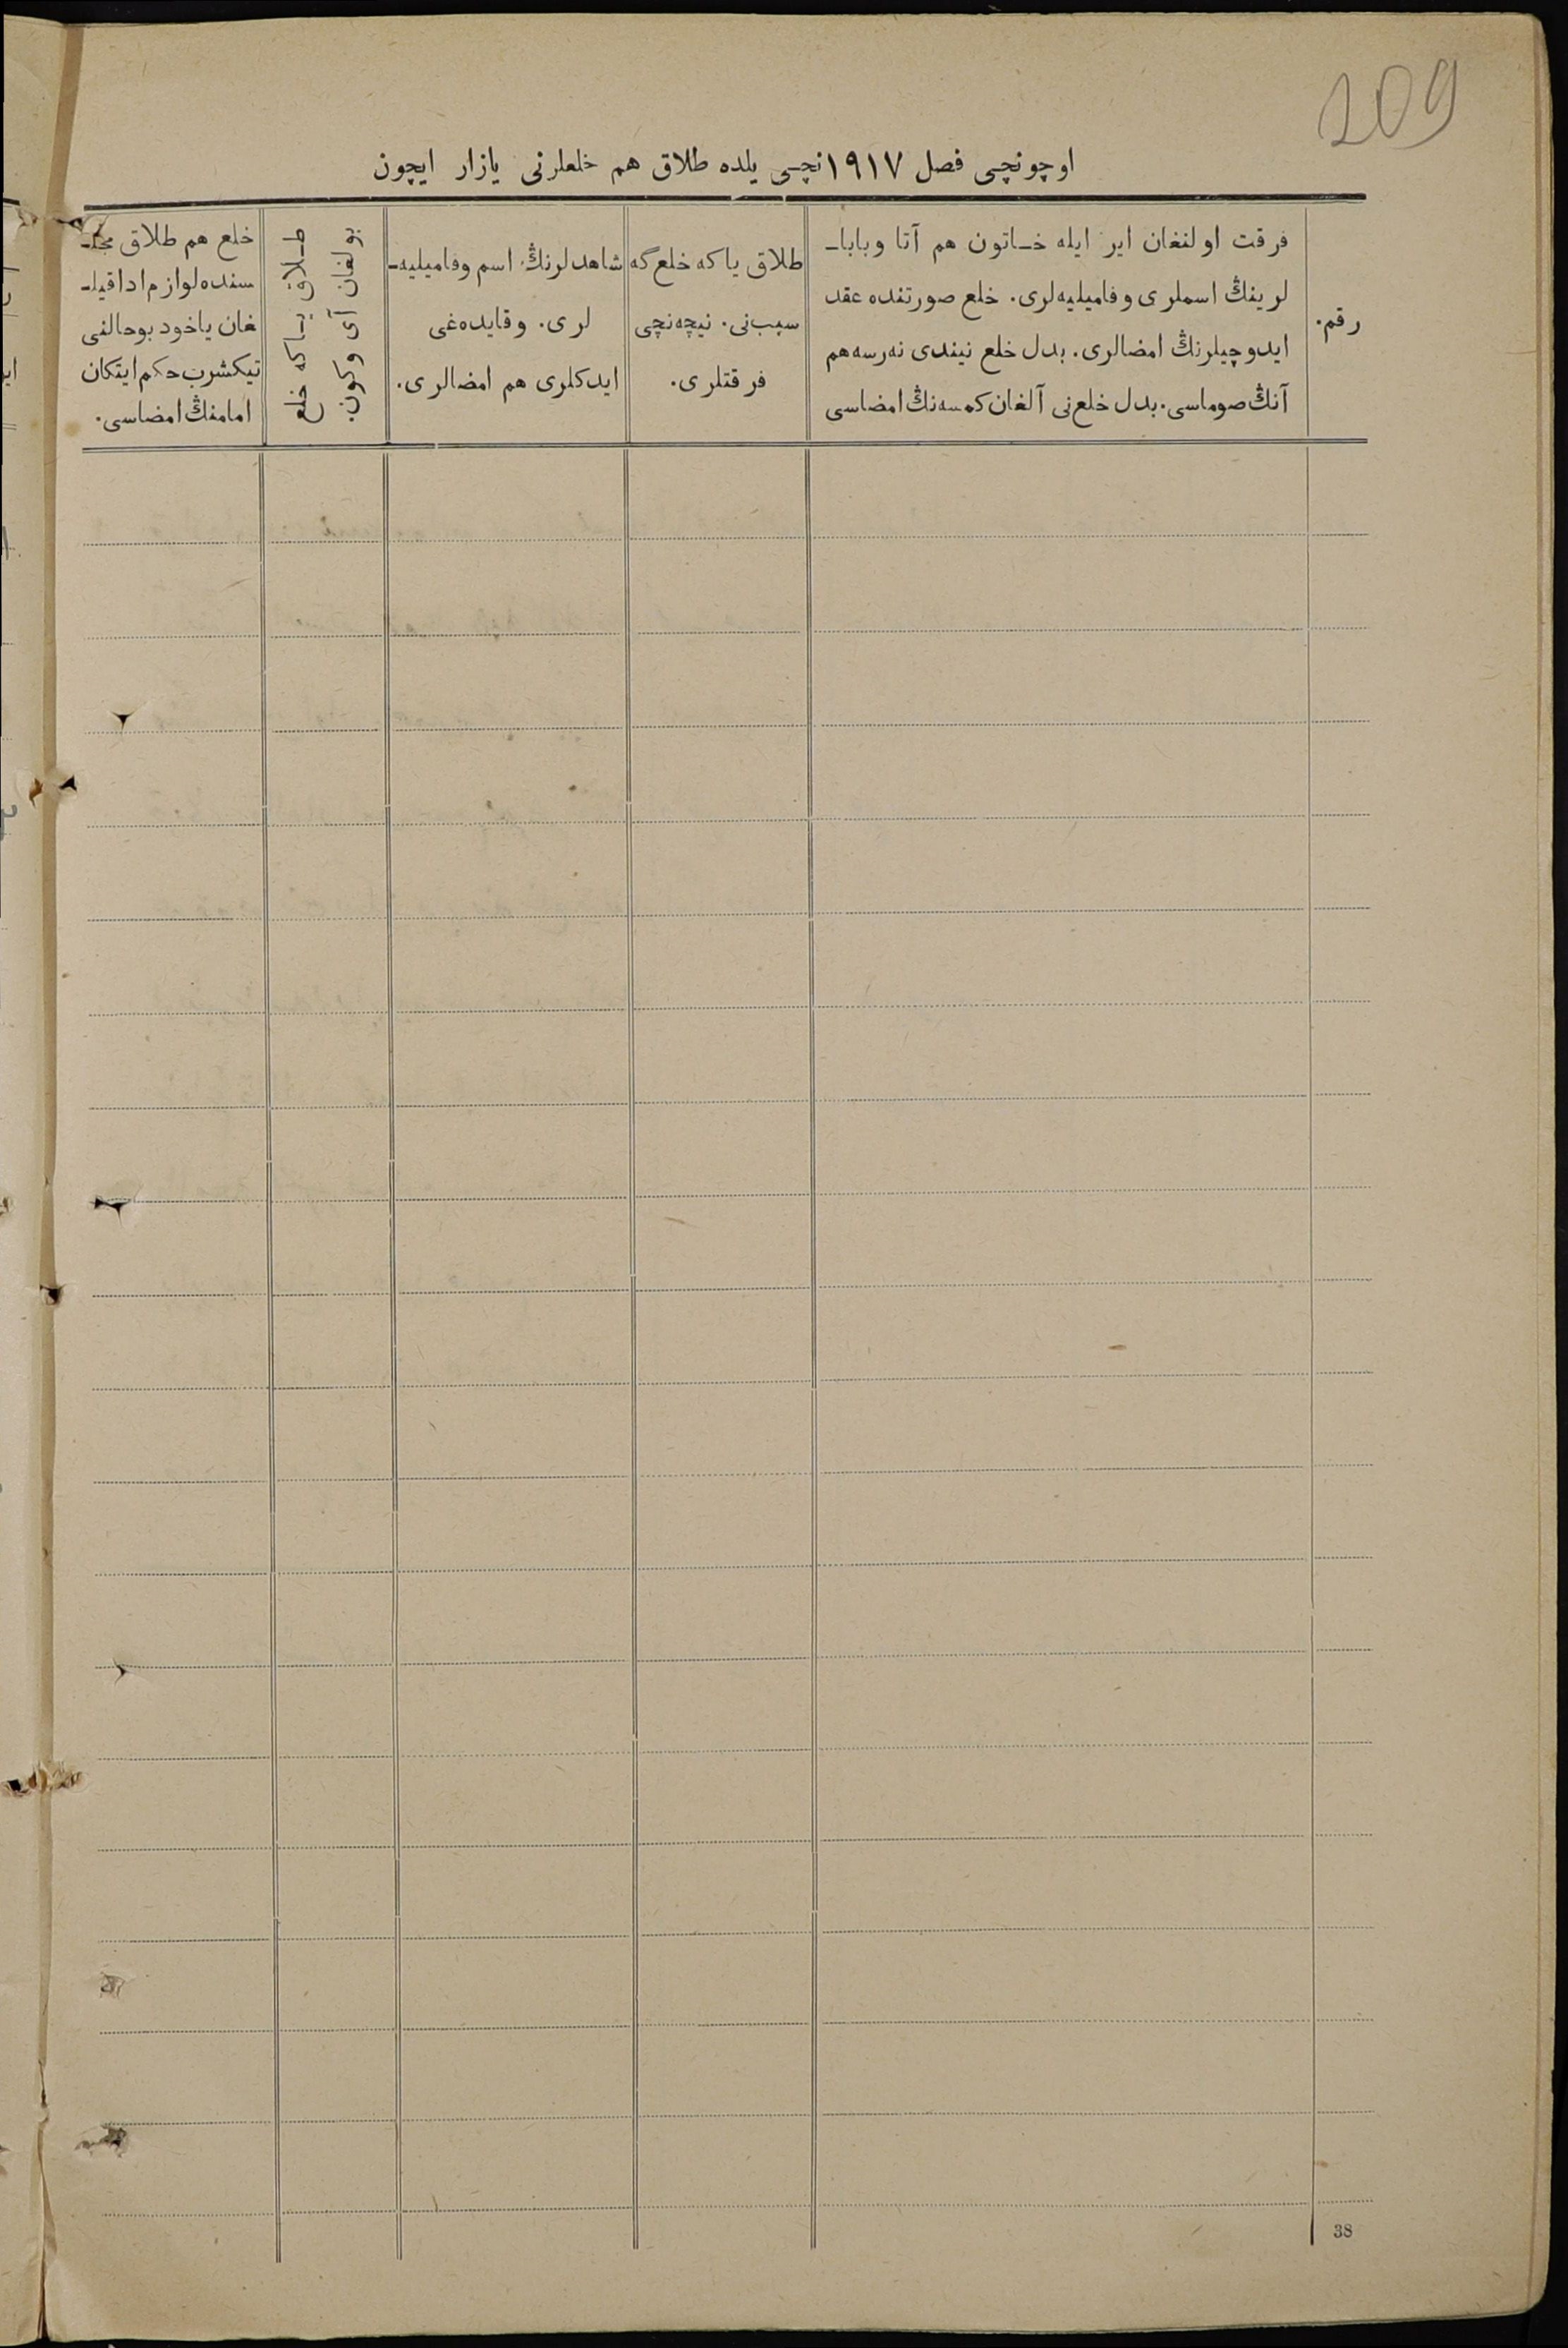 209
اوچونچی فصل ١٩١٧نچی یلده طلاق هم خلعلرنی یازار ایچون
رقم.
فرقت اولنغان ایر ایله خاتون هم آتا وبابا-
لرینڭ اسملری وفامیلیه‌لری. خلع صورتنده عقد
ایدوچیلرنڭ امضالری. بدل خلع نیندی نه‌رسه هم
آنڭ صوماسی. بدل خلع‌نی آلغان کمسه‌نڭ امضاسی
طلاق یا که خلع گه
سبب‌نی. نیچه‌نچی
فرقتلری.
شاهدلرنڭ اسم وفامیلیه-
لری. وقایده‌غی
ایدکلری هم امضالری.
طلاق یاکه خلع
بولغان آی وکون.
خلع هم طلاق مجلـ-
سنده لوازم ادا قیلـ-
غان یاخود بوحالنی
تیکشرب حکم ایتکان
امامنڭ امضاسی.
38